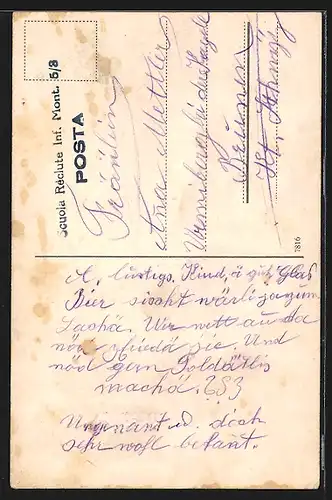 Scuola Reclute Inf. Mont. 5/3
POSTA
Fräulein
Anna Mettler
bei der Kapelle
Brunnen
Kt. Schwyz
7816
A lustigs. Kind, ä guts Glas
Bier sischt wärli zum
Lachä. Wer wett au da
nöd zfriedä sie. Und
nöd gern Soldätlis
machä. ???
Ungenant u. doch
sehr wohl bekant.